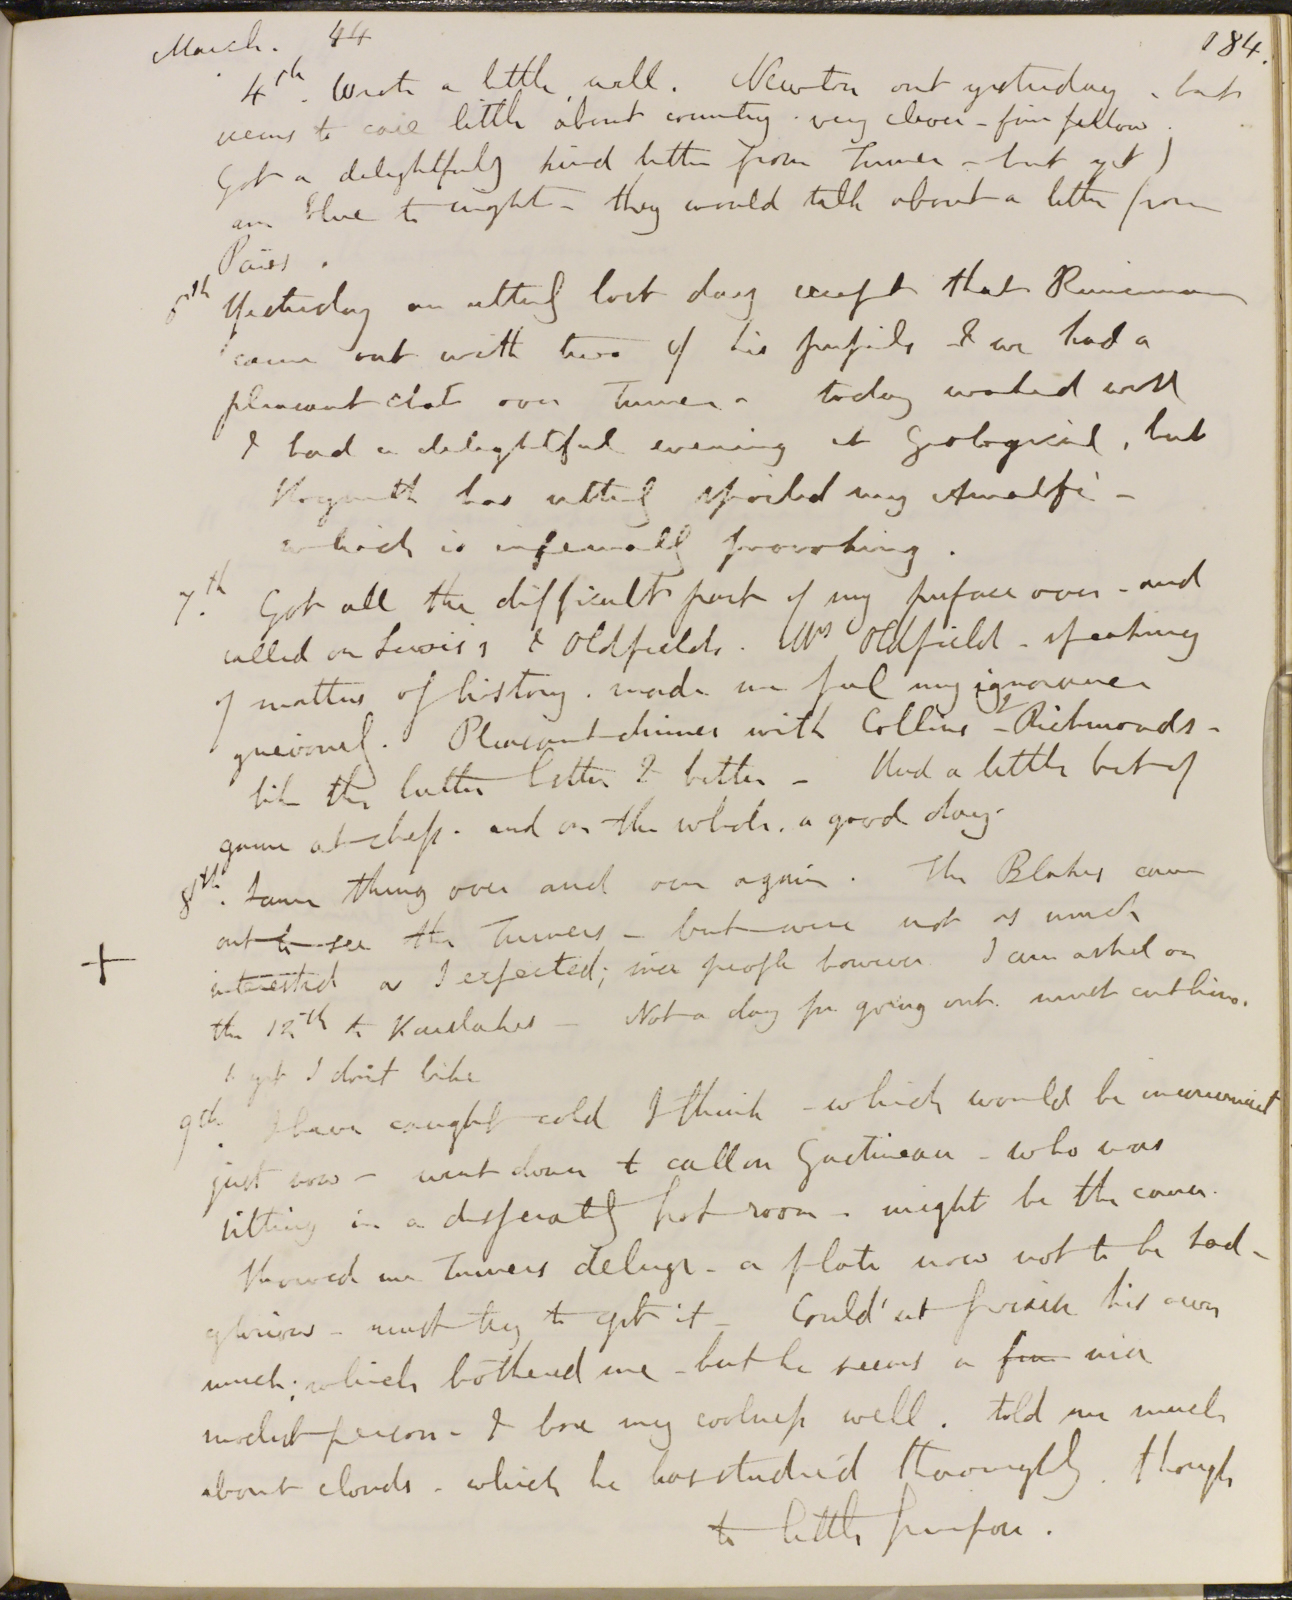 March. 44
184.
4th. Wrote a little, well. Newton out yesterday - but
seems to care little about country. very clever - fine fellow.
Got a delightfully kind letter from Turner - but yet I
am blue to night - they would talk about a letter from
Paris.
6th Yesterday an utterly lost day except that Runciman
came out with two of his pupils & we had a
pleasant chat over Turner - today worked well
& had a delightful evening at Geological, but
Hogarth has utterly spoiled my Amalfi -
which is infernally provoking.
7.th Got all the difficult part of my preface over - and
called on Lewis's & Oldfields. Mrs Oldfield - speaking
of matters of history. made me feel my ignorance
grievously. Pleasant dinner with Collins - Richmonds -
like the latter better & better - Had a little bit of
game at chess. and on the whole. a good day.
8th. Same thing over and over again. The Blakes came
out to see the Turners - but were not as much
interested as I expected; nice people however. I am asked on
the 12th to Karslakes - Not a day for going out. must cut him.
& yet I don't like
9th. I have caught cold I think - which would be inconvenient
just now - went down to call on Gastineau - who was
sitting in a desperately hot room - might be the cause.
Showed me Turners deluge - a plate now not to be had -
glorious - must try to get it - Could'nt praise his own
much; which bothered me - but he seems a fine nice
modest person - & bore my coolness well. told me much
about clouds - which he has studied thoroughly. though
to little purpose.